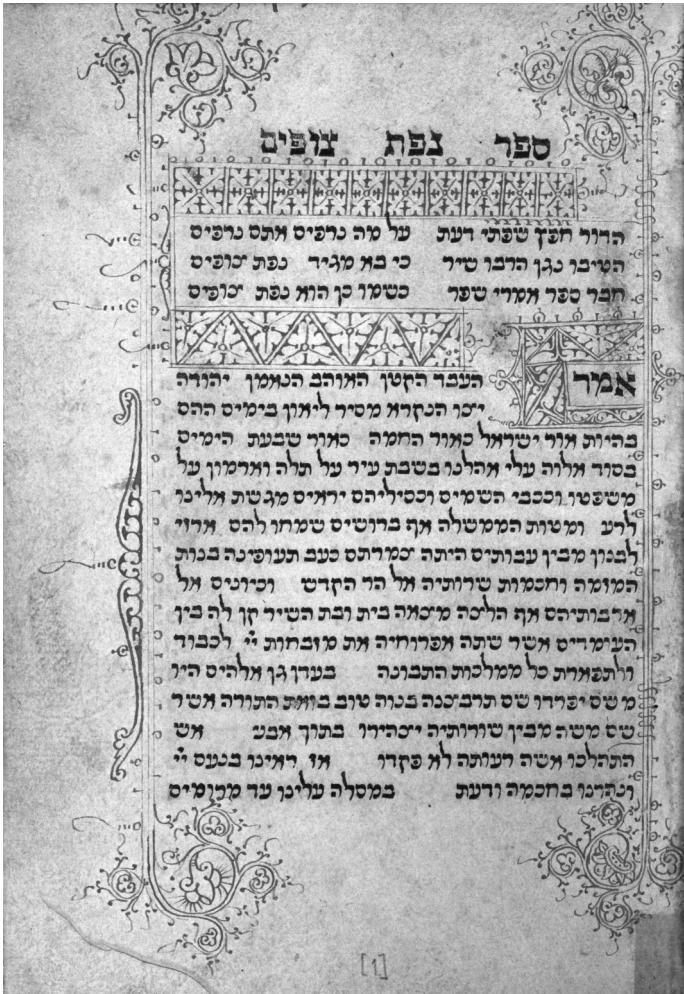 ספר נפת צופים
הדור חפץ שפתי דעת על מה נרפים אתם נרפים
הטיבו נגן הרבו שיר כי בא מגיד נפת צופים
חבר ספר אמרי שפר כשמו כן הוא נפת צופים
אמר העבד הקטן האוהב הנאמן יהודה
יצו הנקרא מסיר ליאון בימים ההם
בהיות אור ישראל כאור החמה כאור שבעת הימים
בסוד אלוה עלי אהלנו בשבת עיר על תלה וארמון על
משפטו וככבי השמים וכסיליהם יראים מגשת אלינו
לרע ומטות הממשלה אף ברושים שמחו להם ארזי
לבנון מבין עבותים היתה צמרתם כעב תעופינה בנות
המזמה וחכמות שרותיה אל הר הקדש וכיונים אל
ארבותיהם אף הליכה מצאה בית ובת השיר קן לה בין
העומדים אשר שתה אפרוחיה את מזבחות יי לכבוד
ולתפארת כל ממלכות התבונה בעדן גן אלהים היו
משם יפרדו שם תרבצנה בנוה טוב בזאת התורה אשר
שם משה מבין שורותיה יצהירו בתוך אבני אש
התהלכו אשה רעותה לא פקדו אז ראינו בנעם יי
ונהרנו בחכמה ודעת במסלה עלינו עד מרומים
[1]